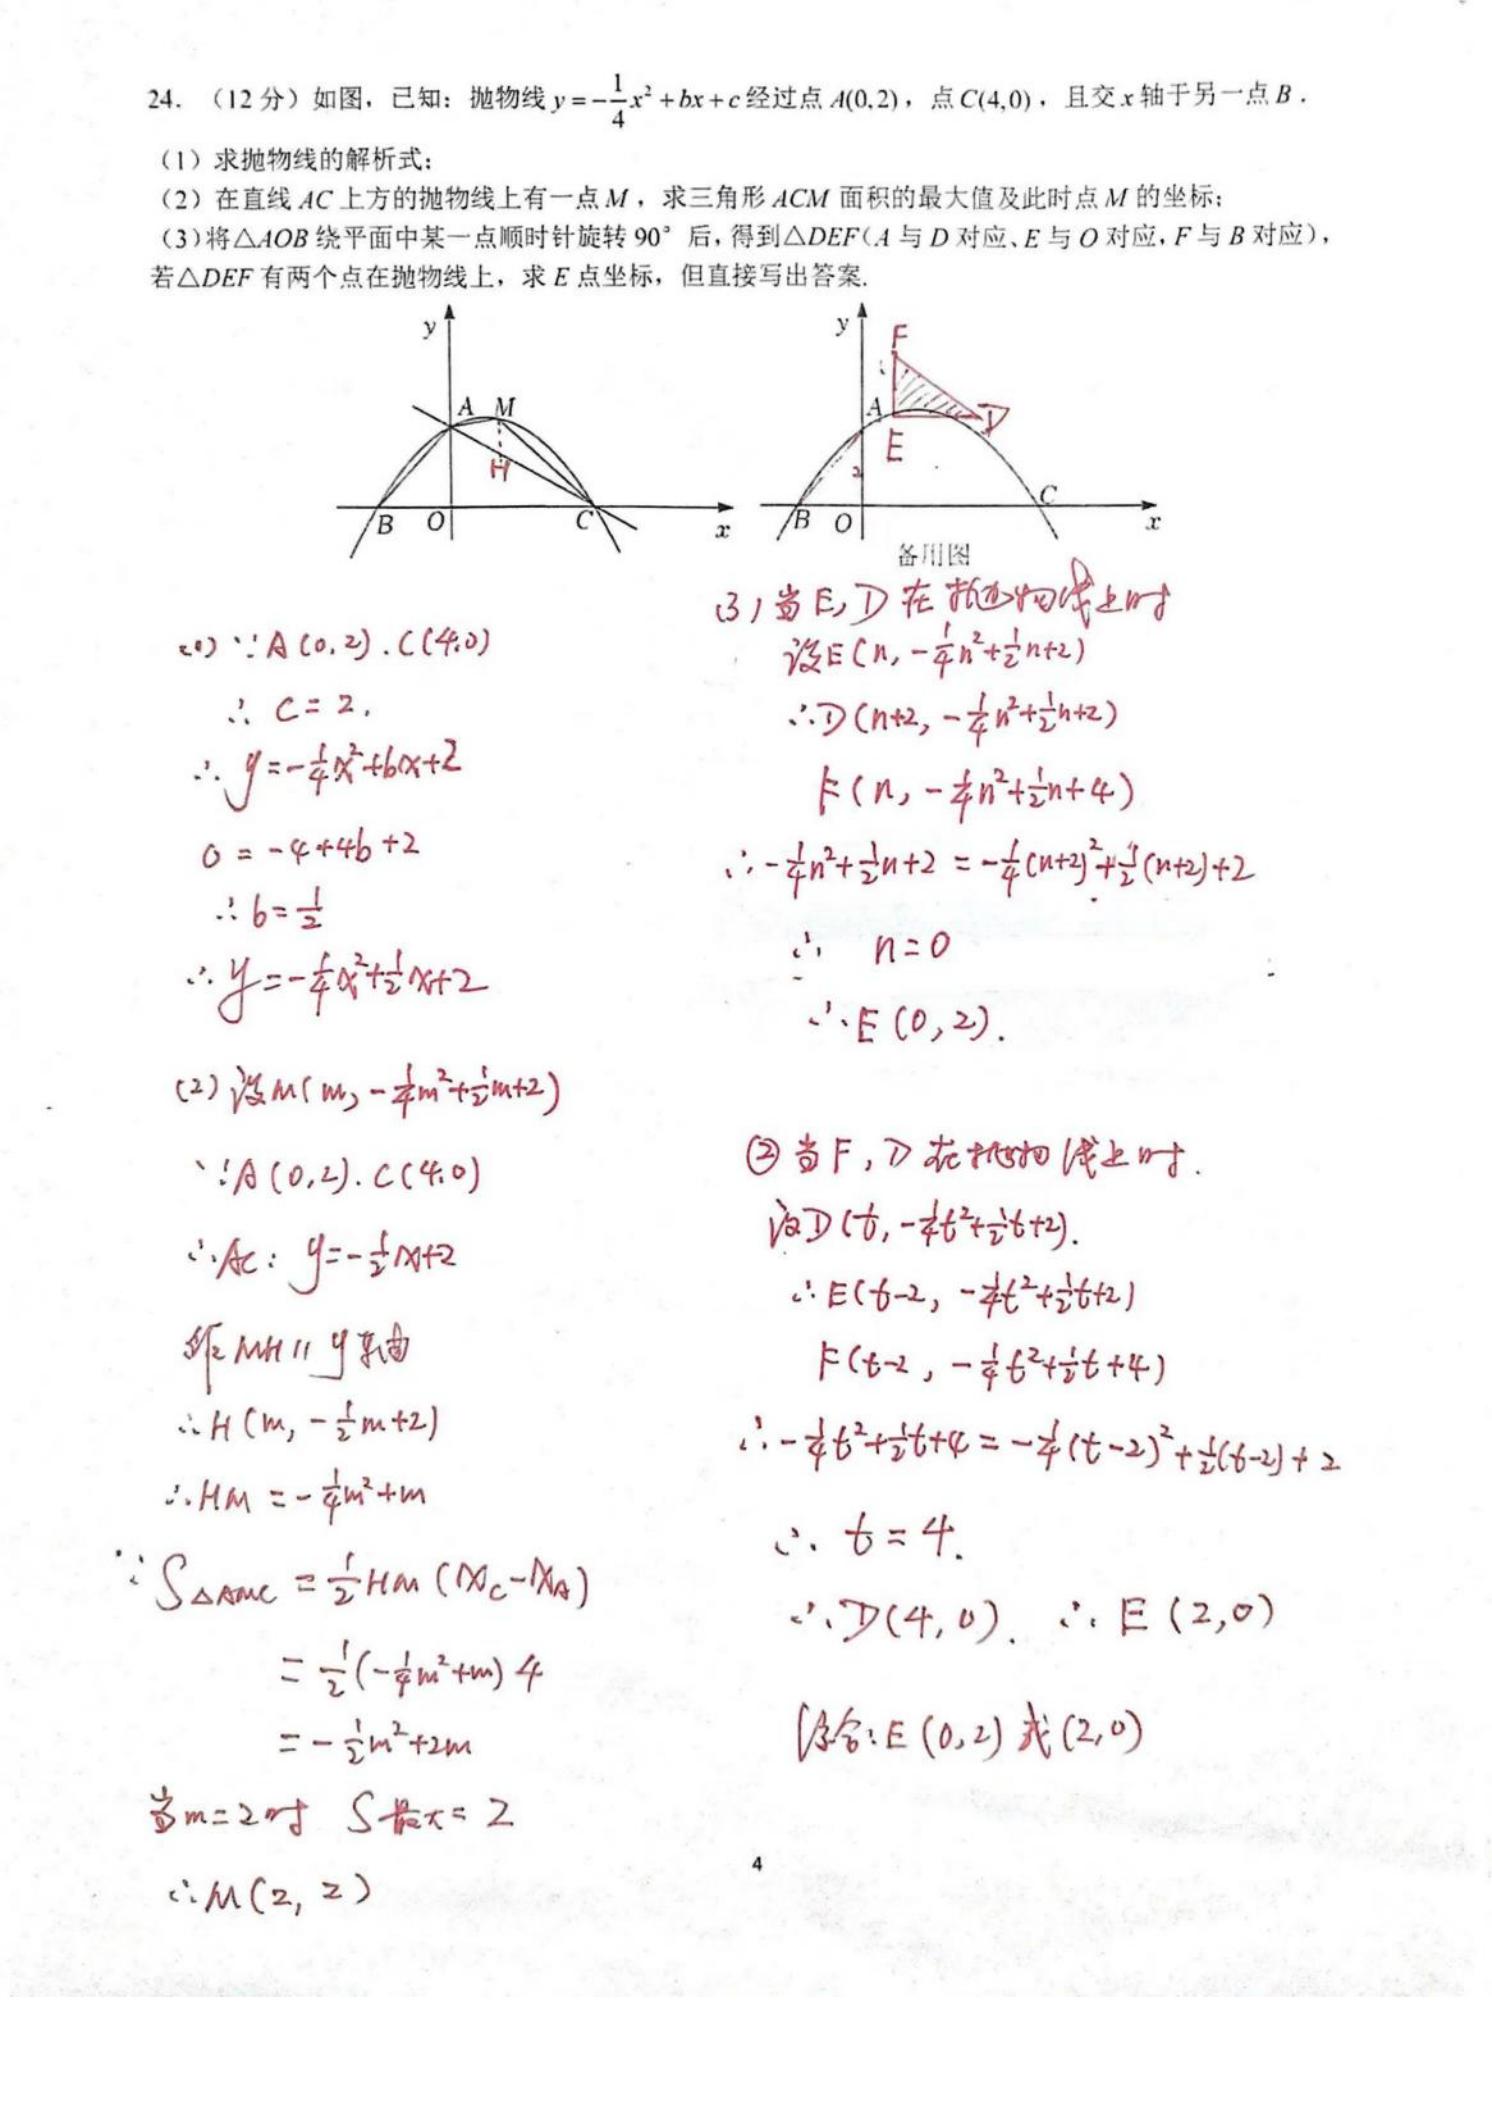 24. （12 分）如图，已知：抛物线 y=-1/4x²+bx+c 经过点 A(0,2)，点 C(4,0)，且交 x 轴于另一点 B．
（1）求抛物线的解析式；
（2）在直线 AC 上方的抛物线上有一点 M，求三角形 ACM 面积的最大值及此时点 M 的坐标；
（3）将△AOB 绕平面中某一点顺时针旋转 90° 后，得到△DEF（A 与 D 对应、E 与 O 对应，F 与 B 对应），
若△DEF 有两个点在抛物线上，求 E 点坐标，但直接写出答案.
y
A M
H
B O C x
y
F
A
D
E
2
B O C x
备用图
(1) ∵A(0,2).C(4,0)
∴ C=2.
∴ y=-1/4x²+bx+2
0=-4+4b+2
∴ b=1/2
∴ y=-1/4x²+1/2x+2
(2) 设M(m, -1/4m²+1/2m+2)
∵A(0,2).C(4,0)
∴AC: y=-1/2x+2
作MH∥y轴
∴H(m, -1/2m+2)
∴HM=-1/4m²+m
∵S△AMC=1/2HM(xC-xA)
=1/2(-1/4m²+m)4
=-1/2m²+2m
当m=2时 S最大=2
∴M(2, 2)
(3) 当E,D在抛物线上时
设E(n, -1/4n²+1/2n+2)
∴D(n+2, -1/4n²+1/2n+2)
F(n, -1/4n²+1/2n+4)
∴-1/4n²+1/2n+2=-1/4(n+2)²+1/2(n+2)+2
∴ n=0
∴E(0,2).
② 当F,D在抛物线上时.
设D(t, -1/4t²+1/2t+2).
∴E(t-2, -1/4t²+1/2t+2)
F(t-2, -1/4t²+1/2t+4)
∴-1/4t²+1/2t+4=-1/4(t-2)²+1/2(t-2)+2
∴ t=4.
∴D(4,0). ∴E(2,0)
综合:E(0,2)或(2,0)
4